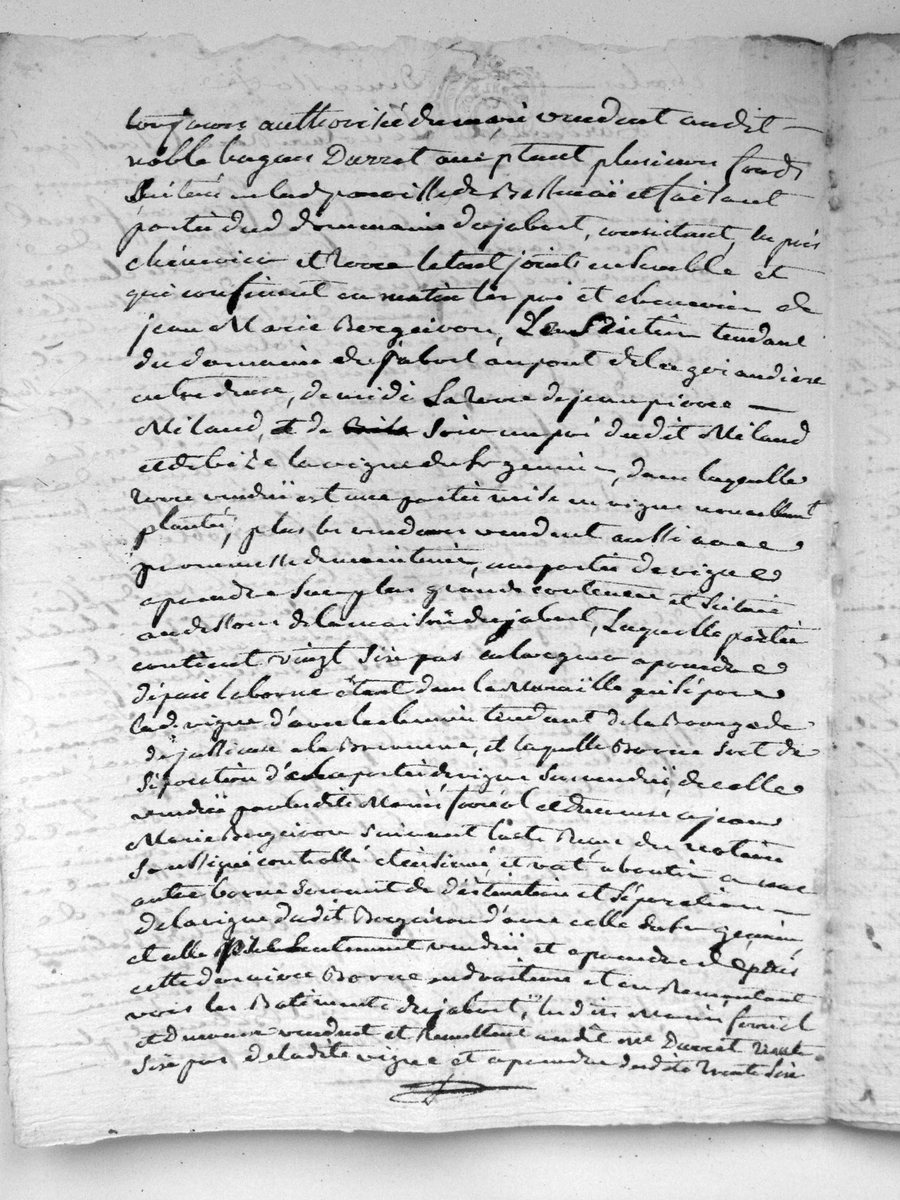 toujours authorisée du mari vendent audit
noble hugues Darret acceptant plusieurs fonds
scitués en lad parroisse de et faisant
partie dud domaine du jabert, consistant, en prés
chenevier et terre le tout joints ensemble et
qui confinent au matin les pré et chenevier de
jean Marie Bergeiron, Le Sentier tendant
du domaine du jabert au pont de la
entre deux, de midi La terre de jean pierre
Miland, et de soir un pré dudit Miland
et de bize la vigne du Sr genin, dans laquelle
terre vendüe est une partie mise en vigne nouvellemt
plantée, plus les vendeurs vendent aussi avec
promesse de maintenir, une partie de vigne
a prendre sur plus grande contenue et scituée
au dessous de la maison du jabert, Laquelle partie
contient vingt six pas en largeur a prendre
depuis la borne étant dans la Muraille qui sépare
lad. vigne d'avec le chemin tendant de la Bourgade
de a la, et laquelle Borne sert de
séparation d'une partie de vigne survendüe, de celle
vendüe par lesdits Mariés ferréol et a jean
Marie Bergeiron suivant l'acte Reçu du notaire
soussigné controllé et insinué, et vat aboutir a une
autre borne servant de et séparation
de la vigne dudit Bergeiron d'avec celle du Sr genin,
et celle vendüe et a prendre depuis
cette derniere Borne en droiture et en Remontant
vers les Batiments du jabert, lesdits Mariés ferréol
et vendent et Remettent audit me Darret trente
six pas de ladite vigne et a prendre desdits trente six